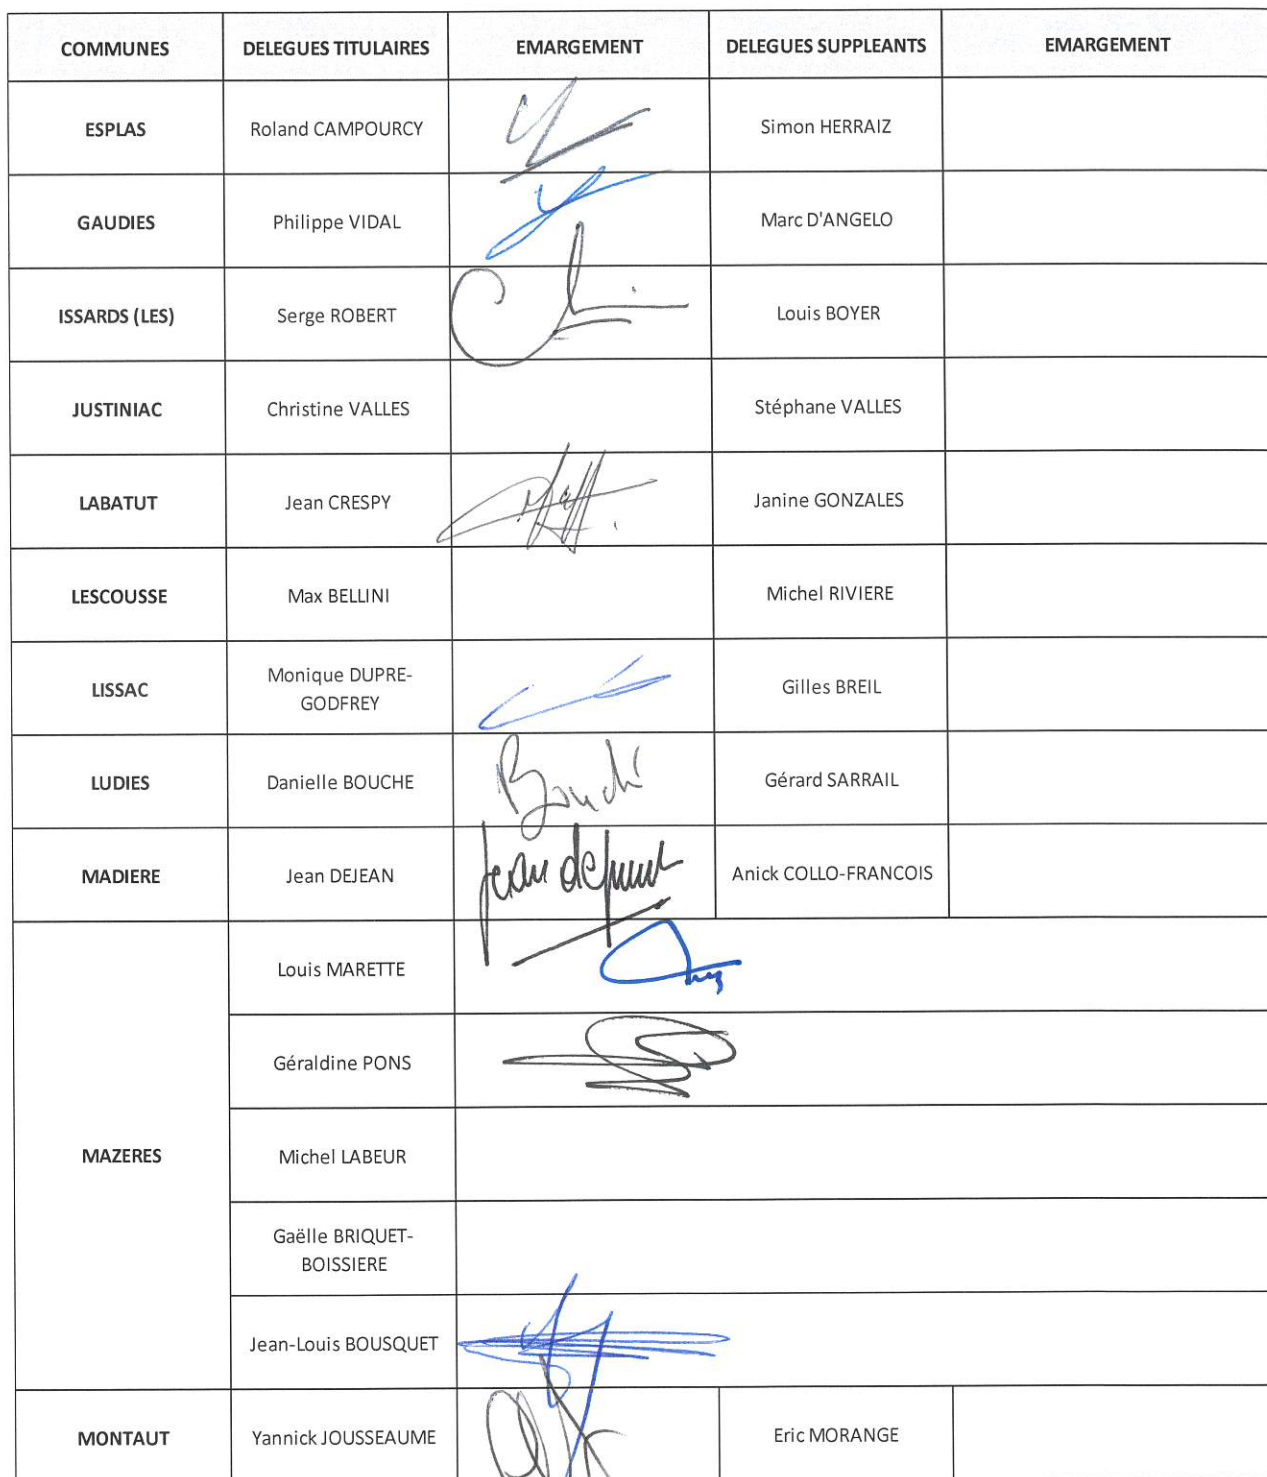 COMMUNES DELEGUES TITULAIRES EMARGEMENT DELEGUES SUPPLEANTS EMARGEMENT
ESPLAS Roland CAMPOURCY Simon HERRAIZ
GAUDIES Philippe VIDAL Marc D'ANGELO
ISSARDS (LES) Serge ROBERT Louis BOYER
JUSTINIAC Christine VALLES Stéphane VALLES
LABATUT Jean CRESPY Janine GONZALES
LESCOUSSE Max BELLINI Michel RIVIERE
LISSAC Monique DUPRE-
GODFREY Gilles BREIL
LUDIES Danielle BOUCHE Bouché Gérard SARRAIL
MADIERE Jean DEJEAN Jean dejean Anick COLLO-FRANCOIS
Louis MARETTE
Géraldine PONS
MAZERES Michel LABEUR
Gaëlle BRIQUET-
BOISSIERE
Jean-Louis BOUSQUET
MONTAUT Yannick JOUSSEAUME Eric MORANGE